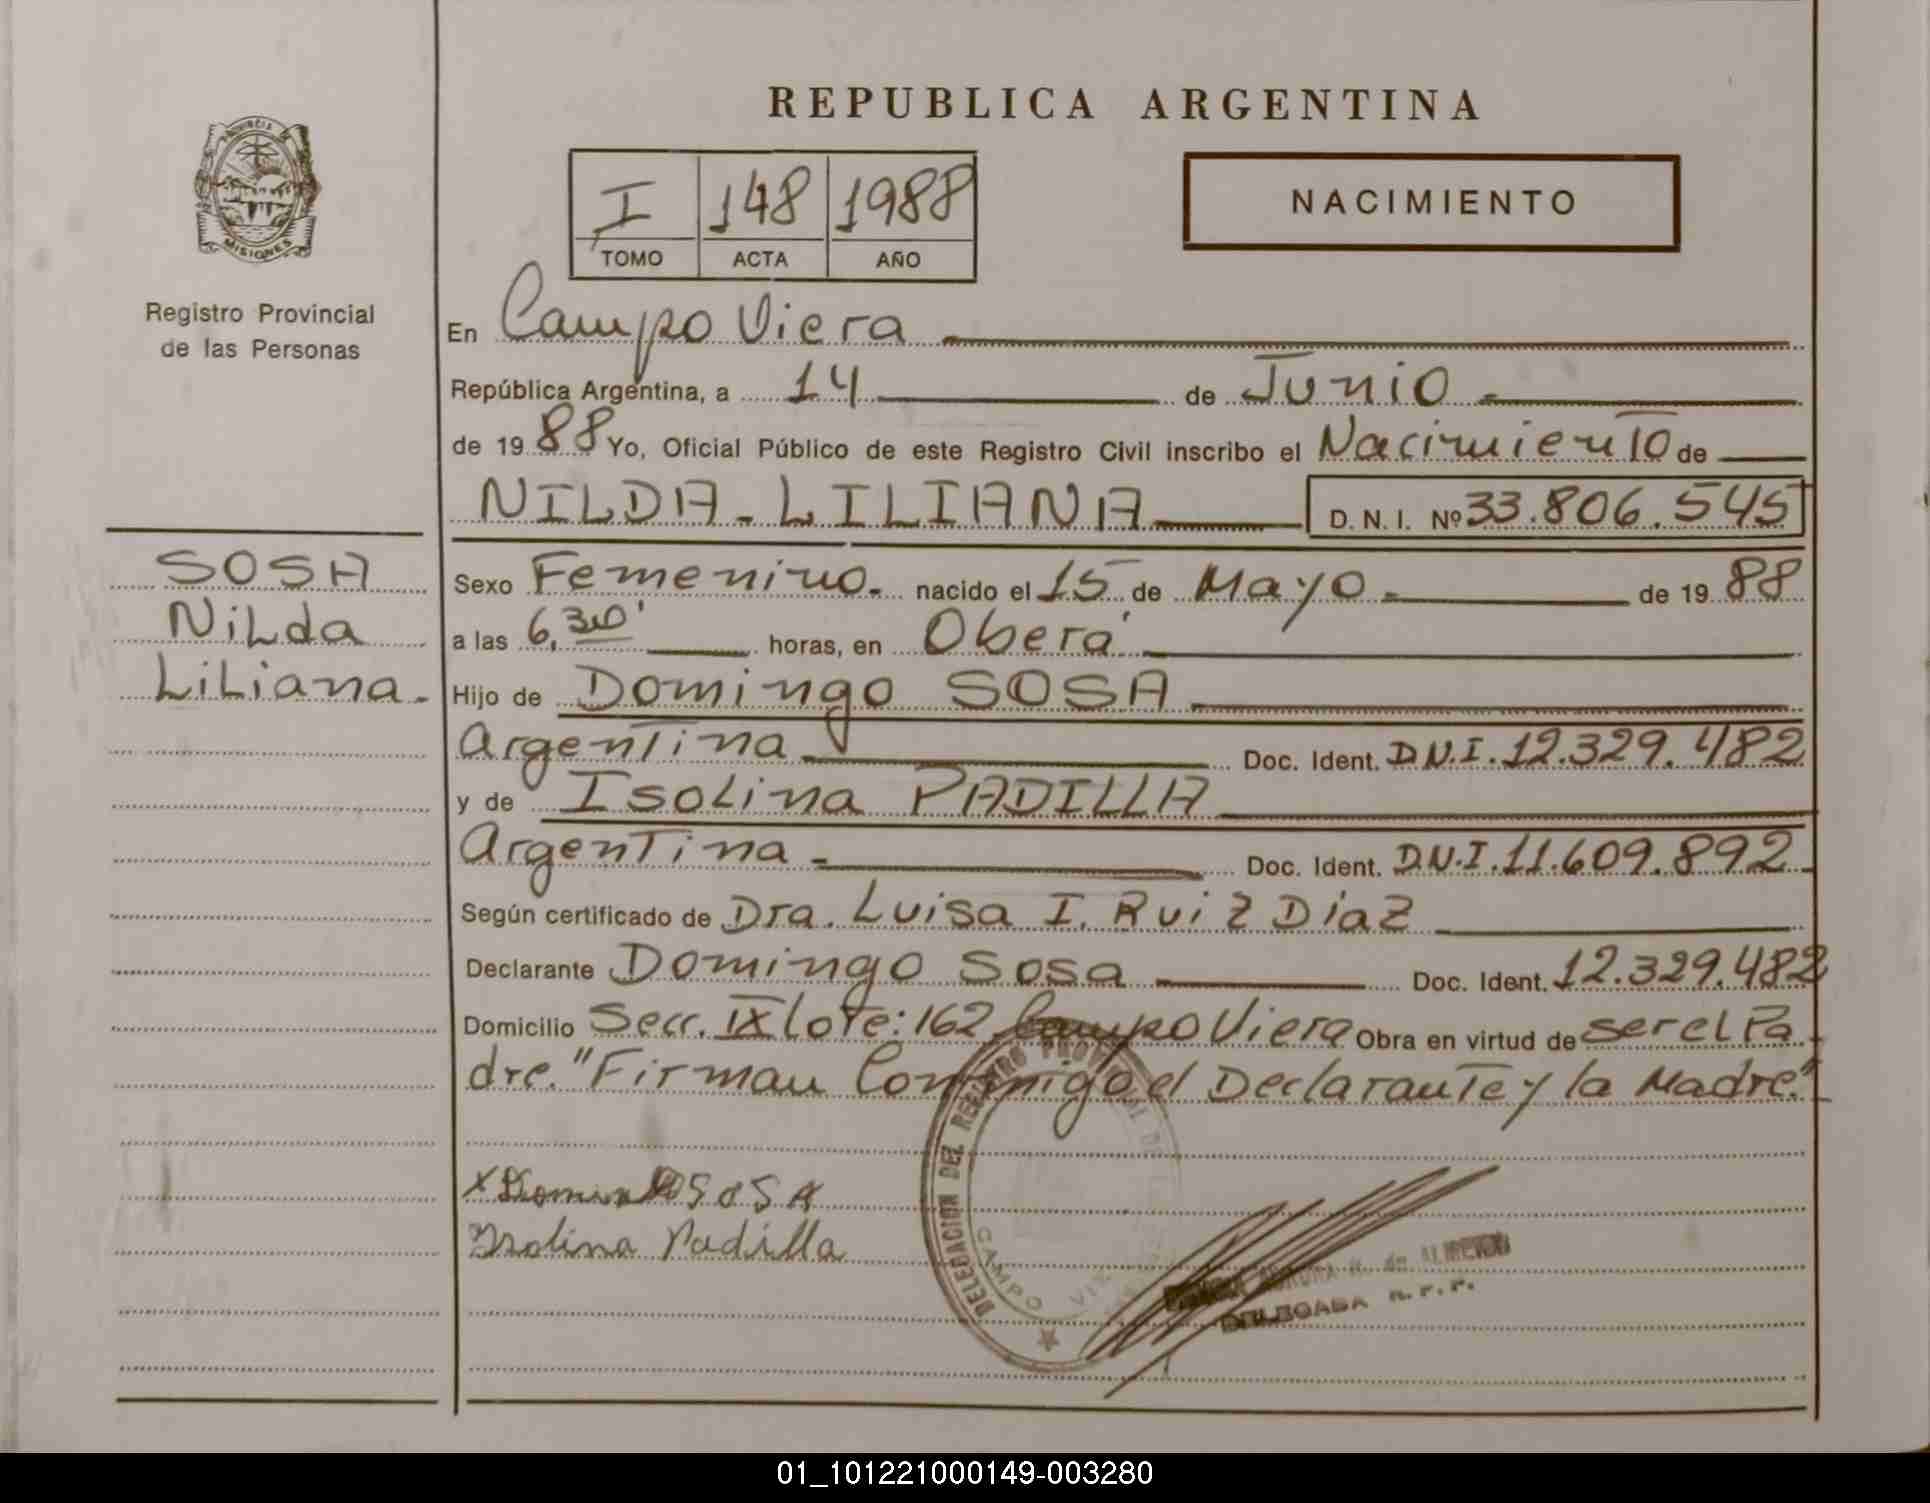 REPUBLICA ARGENTINA
PROVINCIA
MISIONES
Registro Provincial
de las Personas
I 148 1988
TOMO ACTA AÑO
NACIMIENTO
En Campo Viera
República Argentina, a 14 de Junio
de 1988 Yo, Oficial Público de este Registro Civil inscribo el Nacimiento de
NILDA-LILIANA D. N. I. Nº 33.806.545
SOSA
Nilda
Liliana.
Sexo Femenino. nacido el 15 de Mayo de 1988
a las 6,30' horas, en Oberá
Hijo de Domingo SOSA
Argentina Doc. Ident. D.N.I. 12.329.482
y de Isolina PADILLA
Argentina Doc. Ident. D.N.I. 11.609.892
Según certificado de Dra. Luisa I. Ruiz Diaz
Declarante Domingo Sosa Doc. Ident. 12.329.482
Domicilio Secc. IX lote: 162 Campo Viera Obra en virtud de ser el Pa
dre. "Firman Conmigo el Declarante y la Madre."
DELEGACION DEL REGISTRO PROVINCIAL DE
CAMPO
x Domingo SOSA
Isolina Padilla
DELEGADA R. P. P.
01_101221000149-003280